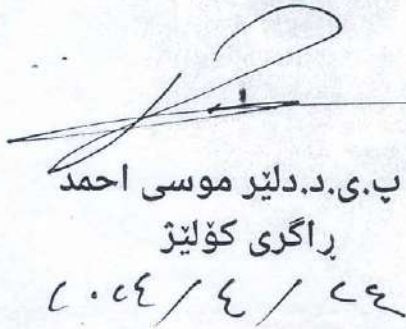 پ.ی.د.دلێر موسی احمد
ڕاگری کۆلێژ
٢٠٢٤ / ٤ / ٢٤